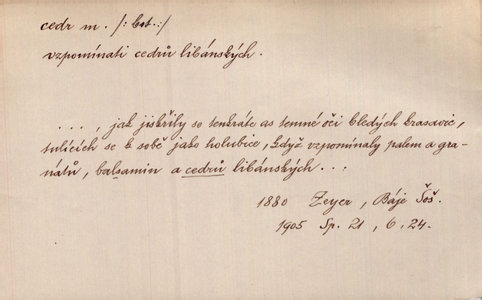 cedr m. /: bot. :/
vzpomínati cedrů libánských.
. . . , jak jiskřily se tenkráte as temné oči bledých krasavic,
tulících se k sobě jako holubice, když vzpomínaly palem a gra-
nátů, balsamin a cedrů libánských . . .
1880 Zeyer, Báje Šoš.
1905 Sp. 21, 6, 24.